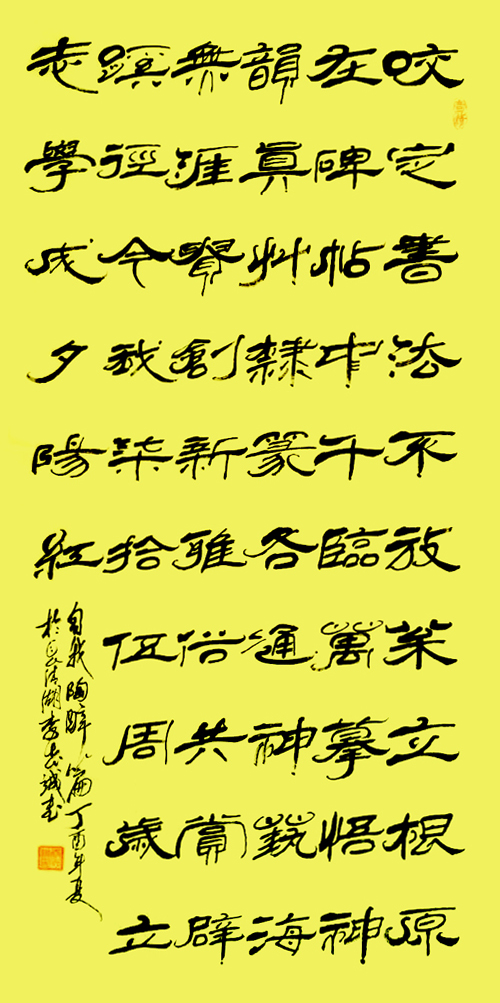 咬定書法不放立根原
在碑帖中千臨萬摹悟神
韻眞艸隸篆各通神藝海
無涯賢創新雅俗共賞辟
蹊徑今我柒拾伍周歲立
志學成夕陽紅
自我陶醉篇丁酉年夏
於長清湖李誠書